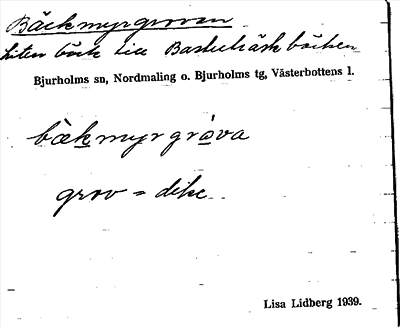 Bäckmyrgrovan
Liten bäck till Bastuträskbäcken
Bjurholms sn, Nordmaling o. Bjurholms tg, Västerbottens l.
bäkmyrgròva
grov = dike.
Lisa Lidberg 1939.